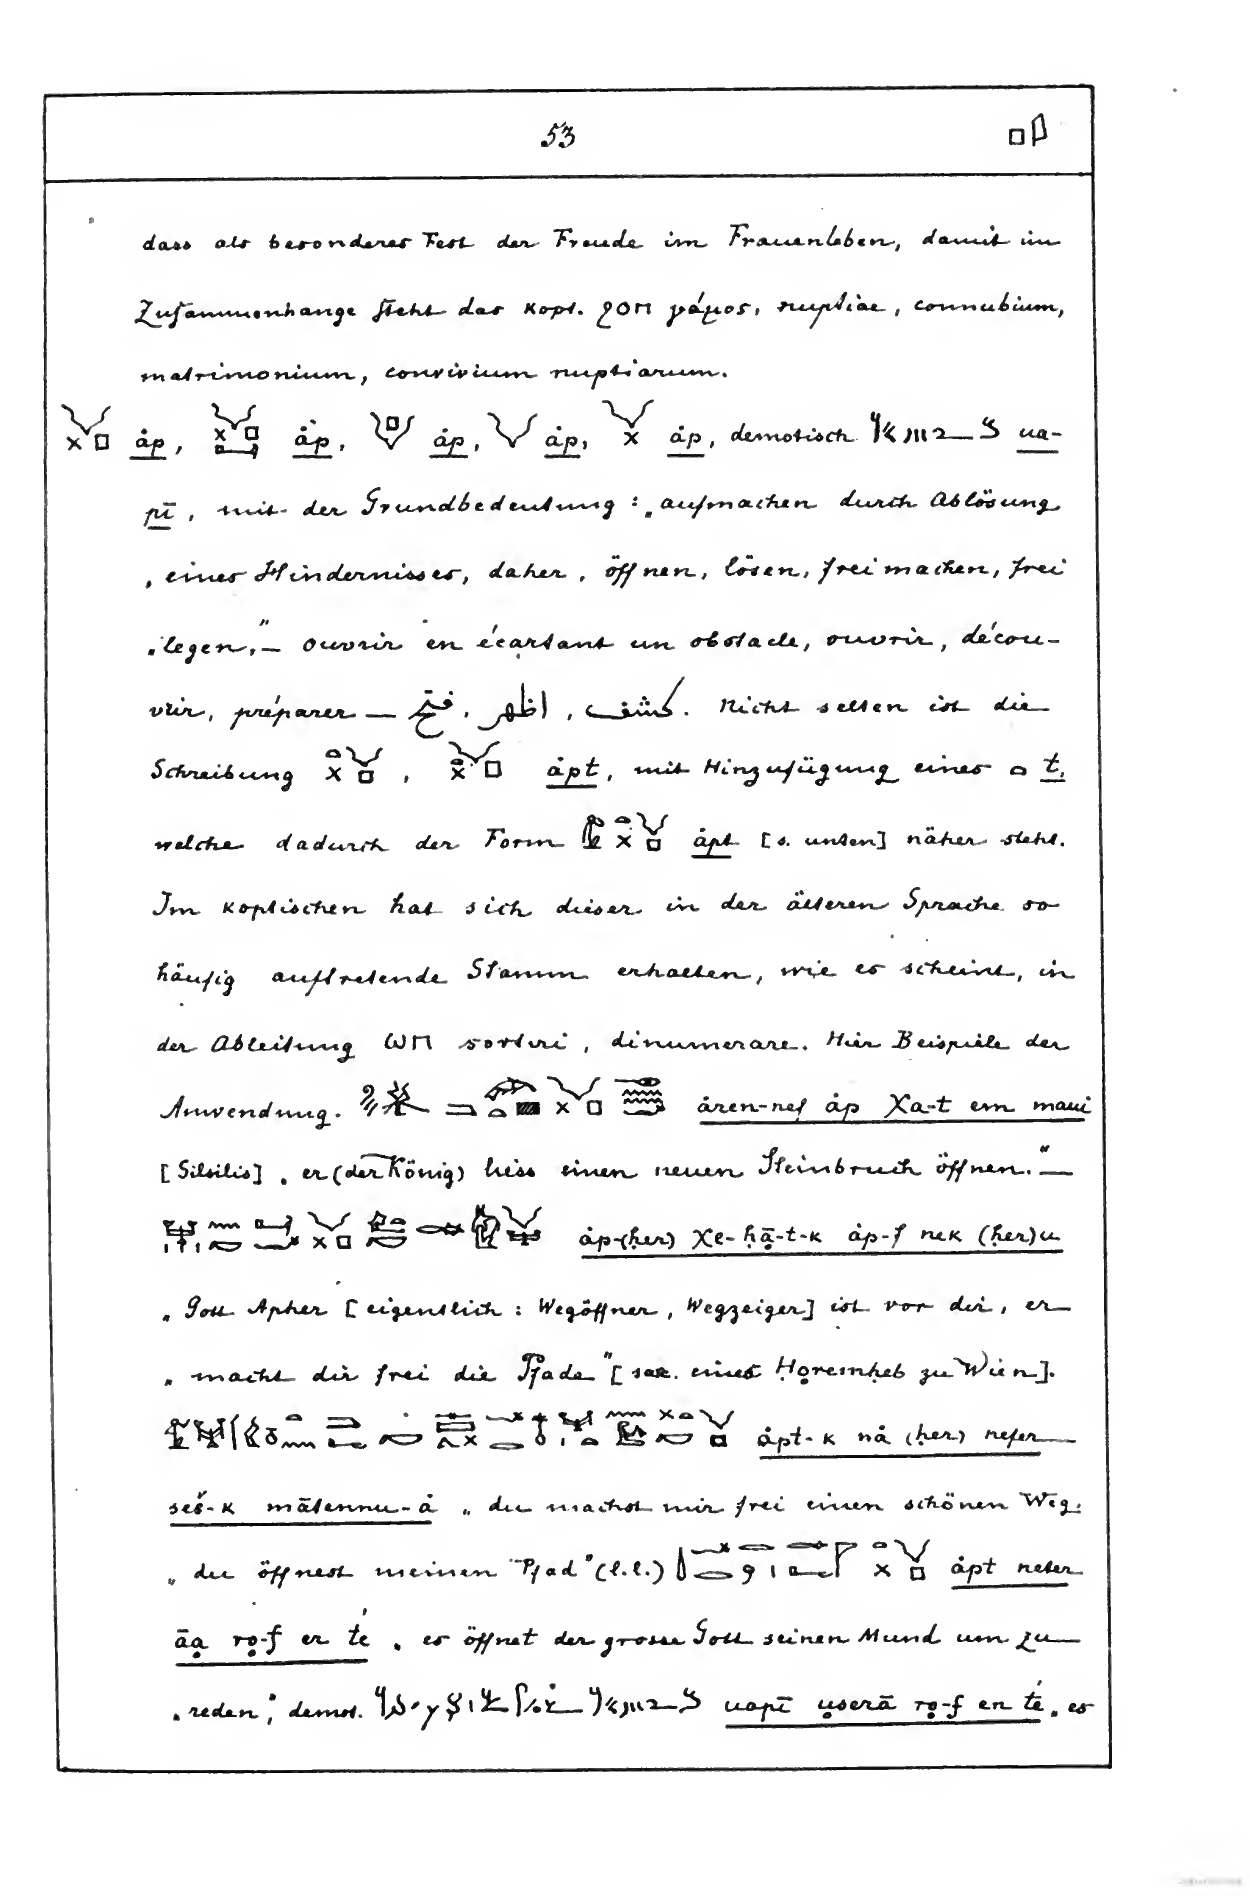 53
dass als besonderes Fest der Freude im Frauenleben, damit im
Zusammenhange steht das kopt. ϩⲟⲡ γάμος, nuptiae, connubium,
matrimonium, convivium nuptiarum.
ȧp, ȧp, ȧp, ȧp, ȧp, demotisch ua-
pī, mit der Grundbedeutung: „aufmachen durch Ablösung
„eines Hindernisses, daher, öffnen, lösen, frei machen, frei
„legen,“ — ouvrir en écartant un obstacle, ouvrir, décou-
vrir, préparer — فتح, اظهر, كشف. Nicht selten ist die
Schreibung , ȧpt, mit Hinzufügung eines t,
welche dadurch der Form ȧpt [s. unten] näher steht.
Im koptischen hat sich dieser in der älteren Sprache so
häufig auftretende Stamm erhalten, wie es scheint, in
der Ableitung ⲱⲡ sortiri, dinumerare. Hier Beispiele der
Anwendung. ȧren-nef ȧp χa-t em maui
[Silsilis] „er (der König) hiess einen neuen Steinbruch öffnen.“ —
ȧp-(ḥer) χe-ḥā-t-k ȧp-f nek (ḥer)u
„Gott Apher [eigentlich: Wegöffner, Wegzeiger] ist vor dir, er
„macht dir frei die Pfade“ [sar. eines Ḥoremḥeb zu Wien].
ȧpt-k nȧ (ḥer) nefer
seš-k mātennu-ȧ „du machst mir frei einen schönen Weg,
„du öffnest meinen Pfad“ (l.l.) ȧpt neter
āa ro-f er te „es öffnet der grosse Gott seinen Mund um zu
„reden“, demot. uapī userā ro-f en te „es